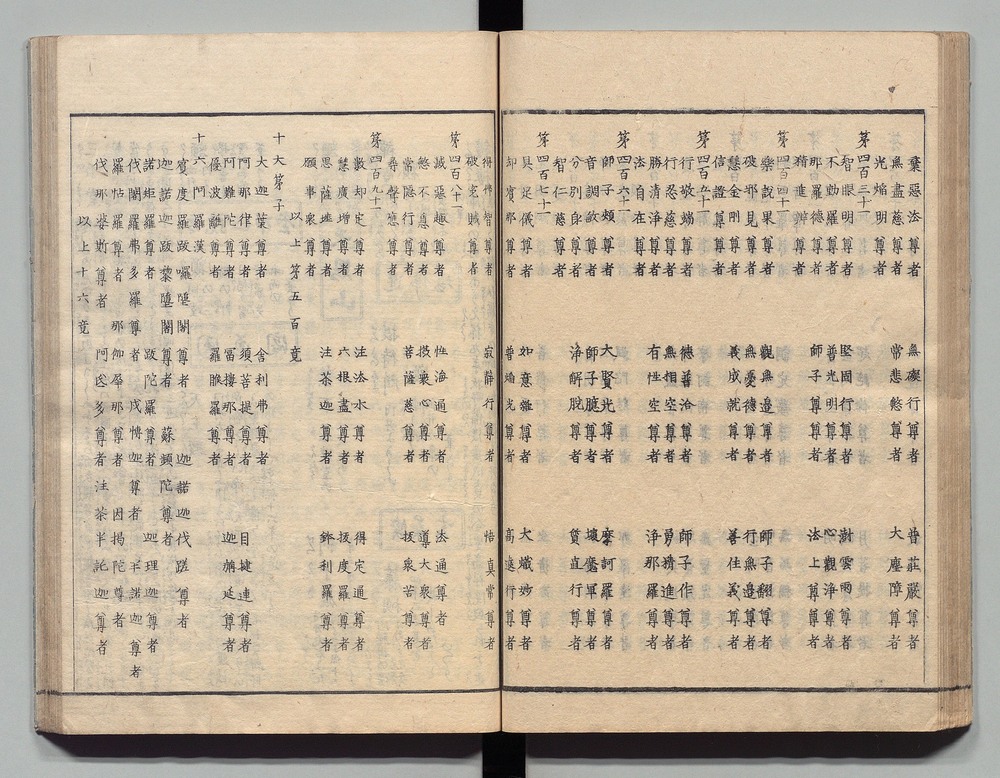 棄惡法尊者 無礙行尊者 普莊嚴尊者
無盡慈尊者 常悲愍尊者 大塵障尊者
光焔明尊者
第四百三十一
智眼明尊者 堅固行尊者 澍雲雨尊者
不動羅尊者 普光明尊者 觀浄尊者
那羅德尊者 師子尊者 法上尊者
精進辨尊者
第四百四十一
樂説果尊者 觀無邊尊者 師子翻尊者
破邪見尊者 無憂德尊者 行無邊尊者
慧金剛尊者 義成就尊者 善住義尊者
信證尊者
第四百五十一
行敬端尊者 德普洽尊者 師子作尊者
行忍慈尊者 無相空尊者 勇精進尊者
勝清浄尊者 有性空尊者 浄那羅尊者
法自在尊者
第四百六十一
師子頰尊者 大賢光尊者 摩訶羅尊者
音調敏尊者 師子臆尊者 壞魔軍尊者
分別身尊者 浄解脱尊者 質直行尊者
智仁慈尊者
第四百七十一
具足儀尊者 如意雜尊者 大熾妙尊者
劫賓那尊者 普焔光尊者 高遠行尊者
得佛智尊者 寂静行尊者 悟真常尊者
破寃賊尊者
第四百八十一
滅惡趣尊者 性海通尊者 法通尊者
愍不息尊者 攝衆心尊者 導大衆尊者
常隱行尊者 菩薩慈尊者 拔衆苦尊者
尋聲應尊者
第四百九十一
數劫定尊者 注法水尊者 得定通尊者
慧廣増尊者 六根盡尊者 拔度羅尊者
思薩埵尊者 注荼迦尊者 鉢利羅尊者
願事衆尊者
以上第五百竟
十大第子
大迦葉尊者 舎利弗尊者
阿那律尊者 須菩提尊者 目犍連尊者
阿難陀尊者 冨樓那尊者 迦旃延尊者
優波離尊者 羅睺羅尊者
十六阿羅漢
賓度羅跋囉墮闍尊者 迦諾迦伐蹉尊者
迦諾迦跋黎墮闍尊者 蘇頻陀尊者
諾矩羅尊者 跋陀羅尊者 迦理迦尊者
伐闍羅弗多羅尊者 戌博迦尊者 半諾迦尊者
羅怙羅尊者 那伽犀那尊者 因掲陀尊者
伐那婆斯尊者 阿氏多尊者 注荼半託迦尊者
以上十六竟